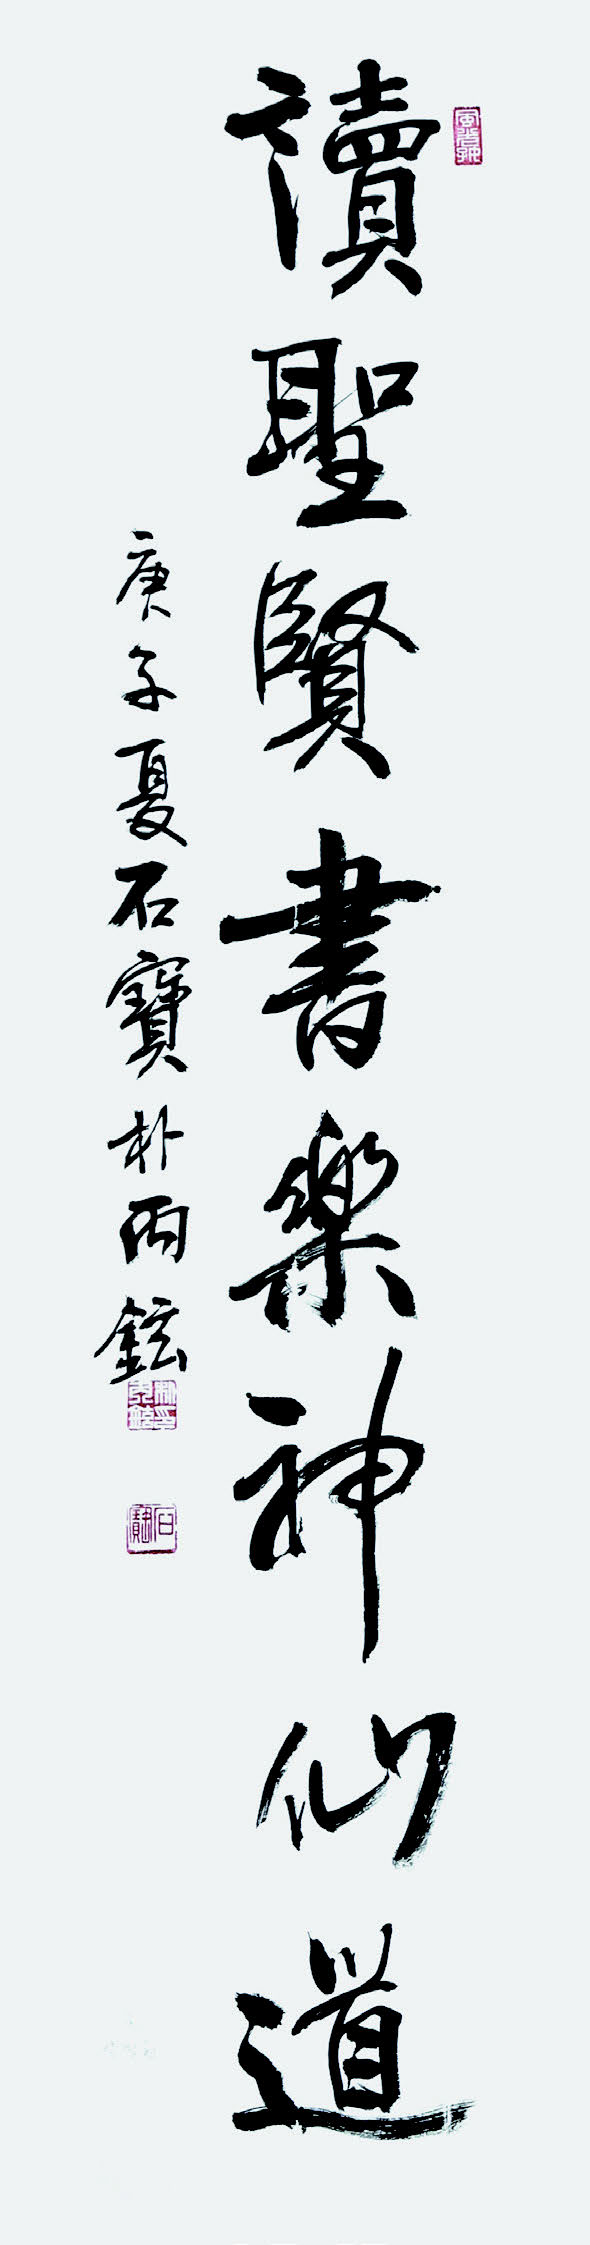 讀聖賢書樂神仙道
庚子夏石寶朴丙鉉
石寶